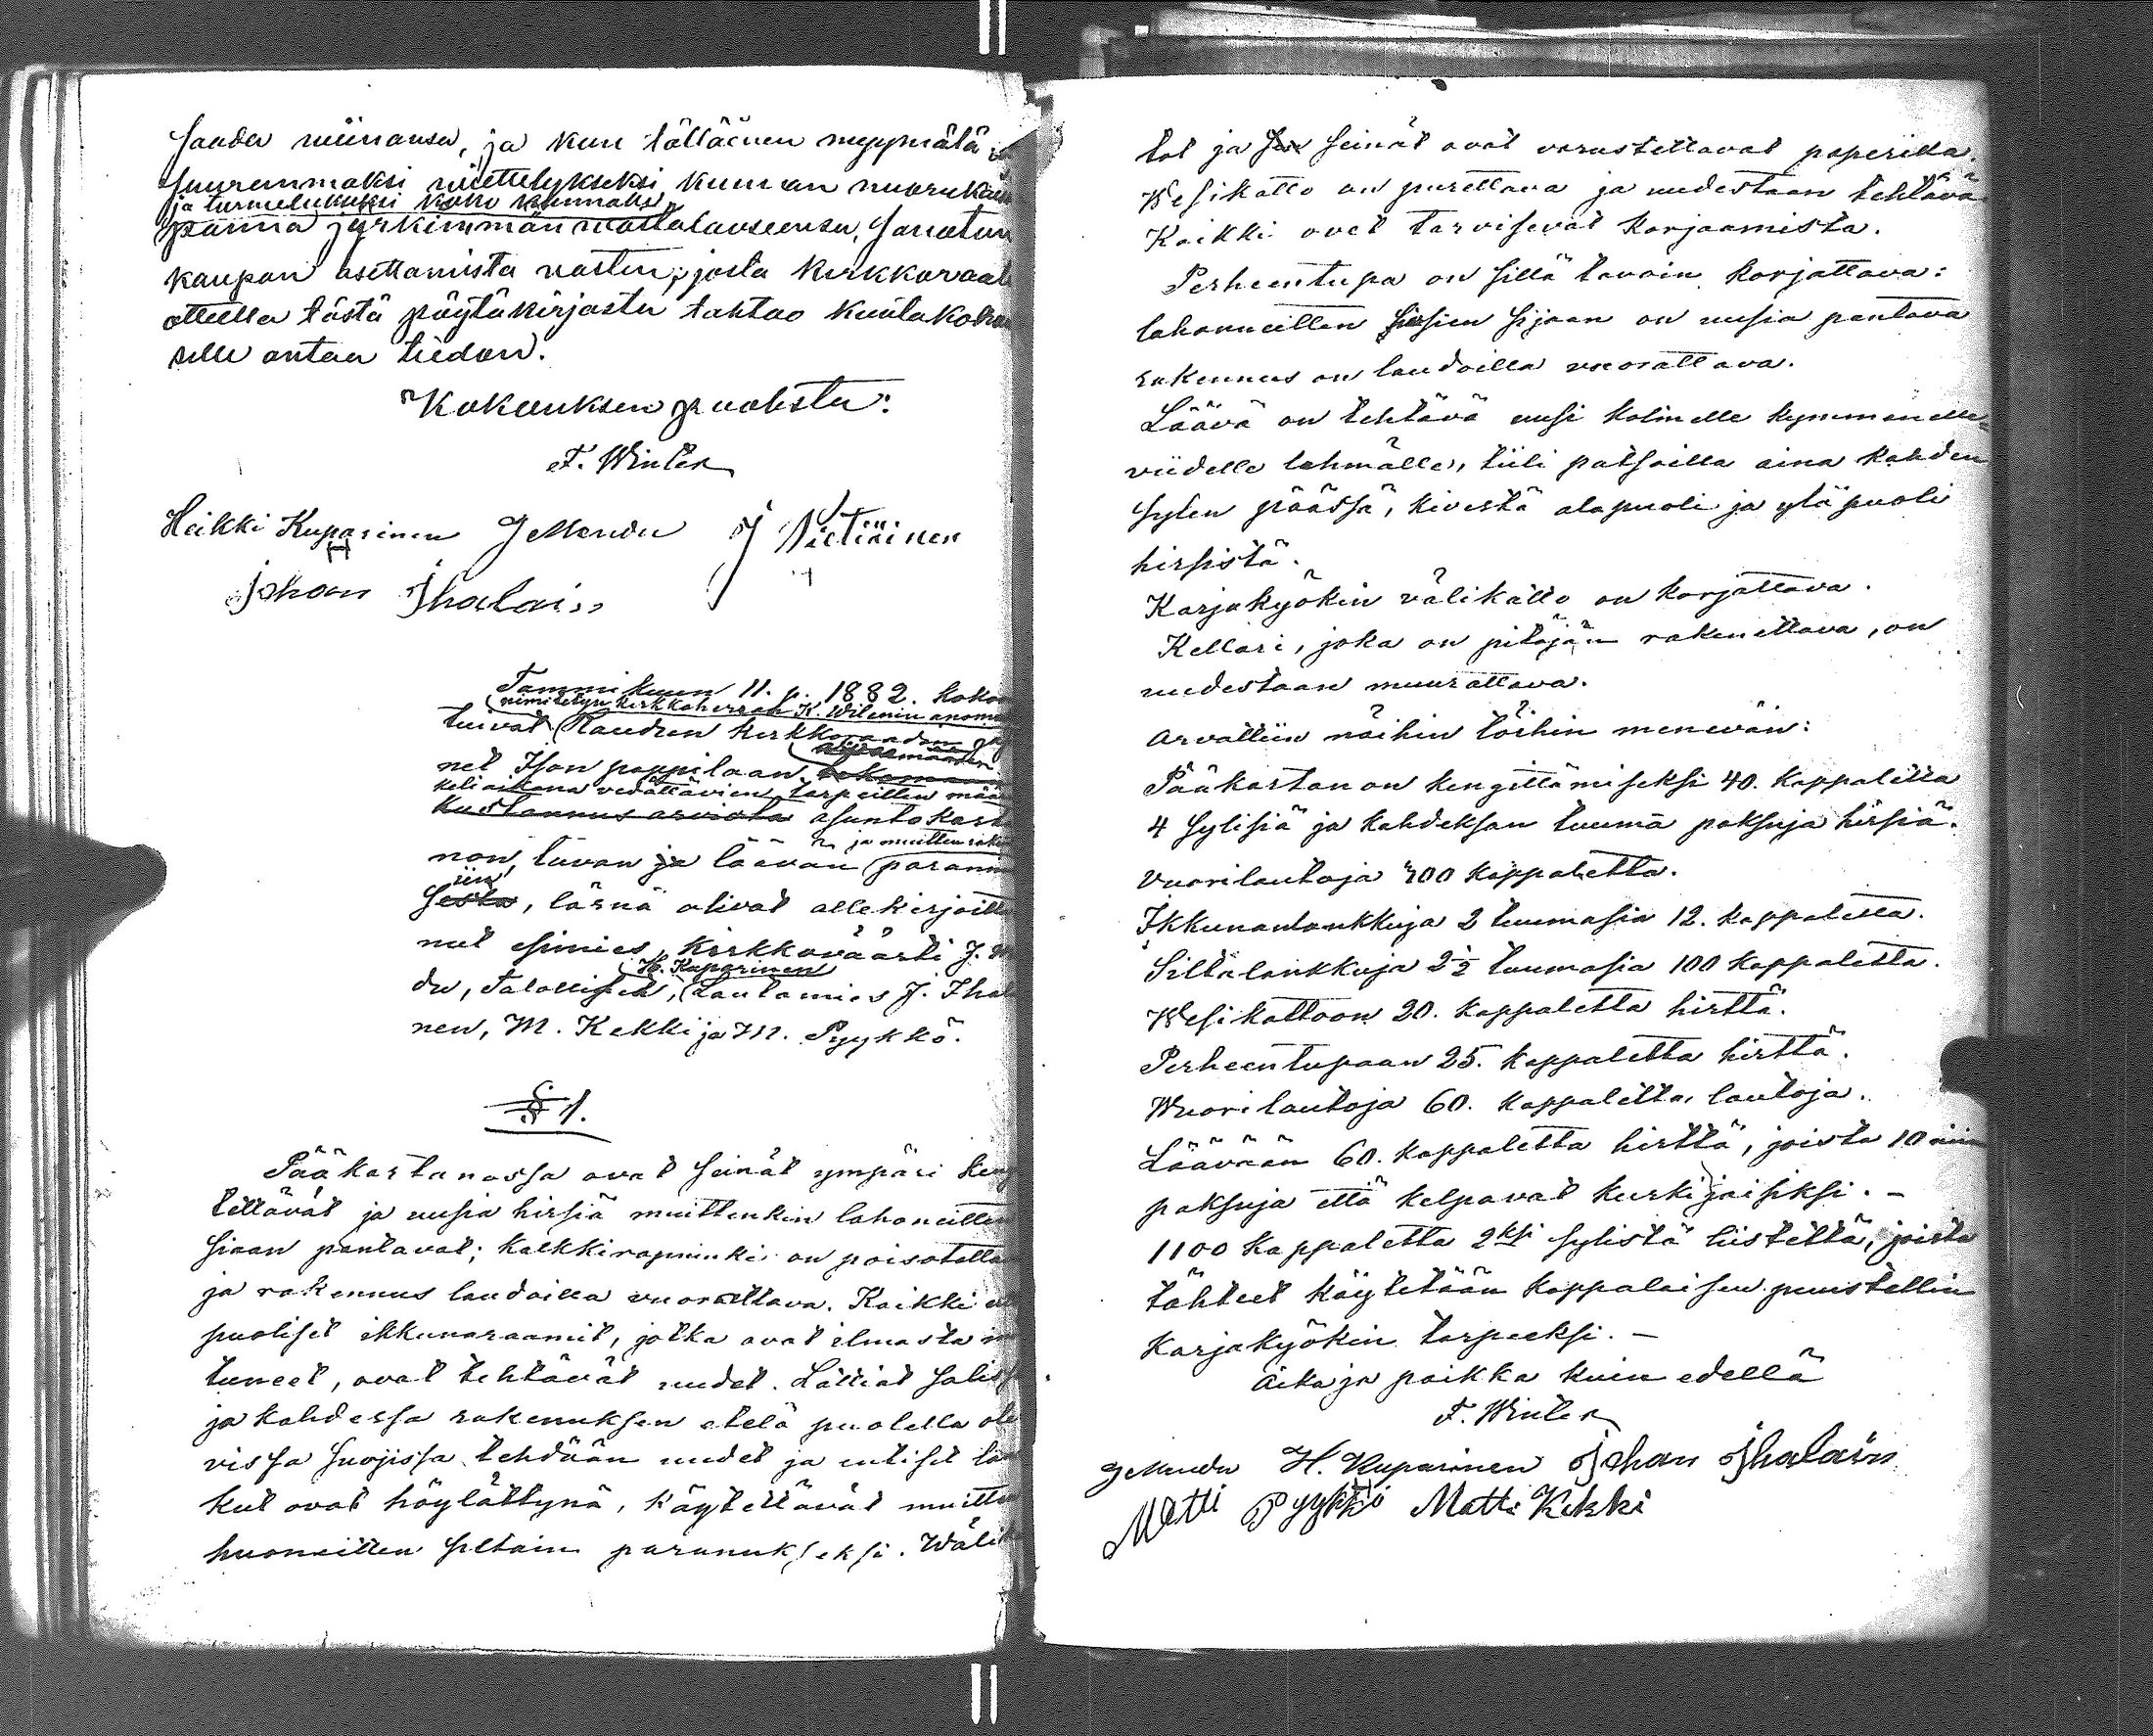 saada viinansa, ja kun tälläinen myymälä
suuremmaksi viettelykseksi kuin on nuorukais
ja turmelukseksi koko kunnalle
panna jyrkimmän vastalauseensa, sanotun
kaupan asettamista vasten, josta kirkkoraati
otteella tästä pöytäkirjasta tahtoo kuulakokou
selle antaa tiedon.
Kokouksen puolesta:
F. Winter
Heikki Kuparinen J Mendu J Vietiäinen
Johan Ihalain
Tammikuun 11. p. 1882. koko
nimitetyn kirkkoherran K. Wilenin anomu
tuivat Raudun kirkkoraadin jäse
net Ison pappilaan
keliaikana vedättävien tarpeitten mää
kustannus arviota asunto kart
ja muitten rake
non, tuvan ja läävän parann
iin
sesta, läsnä olivat allekirjoitta
nut esimies, kirkkoväärti J. M
H. Kuparinen
du, Talolliset, Lautamies J. Ihal
nen, M. Kekki ja M. Pyykkö.
§ 1.
Pääkartanossa ovat seinät ympäri keng
tettävät ja uusia hirsiä muittenkin lahoneitten
siaan pantavat; kalkkirapninki on poisotetta
ja rakennus laudoilla vuorattava. Kaikki ul
puoliset ikkunaraamit, jotka ovat ilmasta
tuneet, ovat tehtävät uudet. Lattiat saliss
ja kahdessa rakennuksen etelä puolella ole
vissa suojissa tehdään uudet ja entiset la
kut ovat höylättynä, käytettävät muitten
huoneitten siltain paranukseksi. Wälik
tot ja seinät ovat varustettavat paperilla.
Wesikatto on purettava ja uudestaan tehtävä
Kaikki ovet tarvisevat korjaamista.
Perheentupa on sillä tavoin korjattava:
lahonneitten hirsien sijaan on uusia pantava
rakennus on laudoilla vuorattava.
Läävä on tehtävä uusi kolmelle kymmenelle
viidelle lehmälle, tiili patsailla aina kahden
sylen päässä, kivestä alapuoli ja yläpuoli
hirsistä.
Karjakyökin välikatto on korjattava.
Kellari, joka on pitäjän rakenettava, on
uudestaan muurattava.
Arvattiin näihin töihin menevän:
Pääkartanon kengittämiseksi 40. kappaletta
4 sylisiä ja kahdeksan tuuma paksuja hirsiä.
Vuorilautoja 700 kappaletta.
Ikkunanlankkuja 2 tuumasia 12. kappaletta.
Siltalankkuja 2½ tuumasia 100 kappaletta.
Wesikattoon 20. kappaletta hirttä.
Perheentupaan 25. kappaletta hirttä.
Wuorilautoja 60. kappaletta lautoja.
Läävään 60. kappaletta hirttä, joista 10 niin
paksuja että kelpavat kurkijaisiksi. –
1100 kappaletta 2ksi sylistä liistettä, joista
tähteet käytetään kappalaisen puustellin
karjakyökin tarpeeksi. –
Aika ja paikka kuin edellä
F. Winter
J Mendu H. Kuparinen Johan Ihalain
Matti Pyykkö Matti Kekki